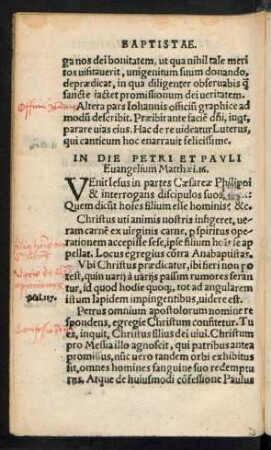 BAPTISTAE.
ga nos dei bonitatem, ut qua nihil tale meri
tos uisitauerit, unigenitum suum donando,
deprædicat, in qua diligenter obseruabis ꝗ̃
sancte iactet promissionum dei ueritatem.
Altera pars Iohannis officiũ graphice ad
modũ describit. Præibit ante faciẽ dñi, inqt,
parare uias eius. Hac de re uideatur Luterus,
qui canticum hoc enarrauit felicissime.
IN DIE PETRI ET PAVLI
Euangelium Matthæi.16.
VEnit Iesus in partes Cæsareæ Philippi
& interrogans discipulos suos,
Quem dicũt hoíes filium esse hominis &c.
Christus uti animis nostris infigeret, ue-
ram carnẽ ex uirginis carne, p spiritus ope
rationem accepisse sese, ipse filium hoís se ap
pellat. Locus egregius cõtra Anabaptistas.
Vbi Christus prædicatur, ibi fieri non po
test, quin uarij à uarijs passim rumores seran
tur, id quod hodie quoqꝫ, tot ad angularem
istum lapidem impingentibus, uidere est.
Psal.117.
Petrus omnium apostolorum nomine re
spondens, egregie Christum confitetur. Tu
es, inquit, Christus filius dei uiui. Christum
pro Messia illo agnoscit, qui patribus antea
promissus, nũc uero tandem orbi exhibitus
sit, omnes homines sanguine suo redemptu
rus. Atque de huiusmodi cõfessione Paulus